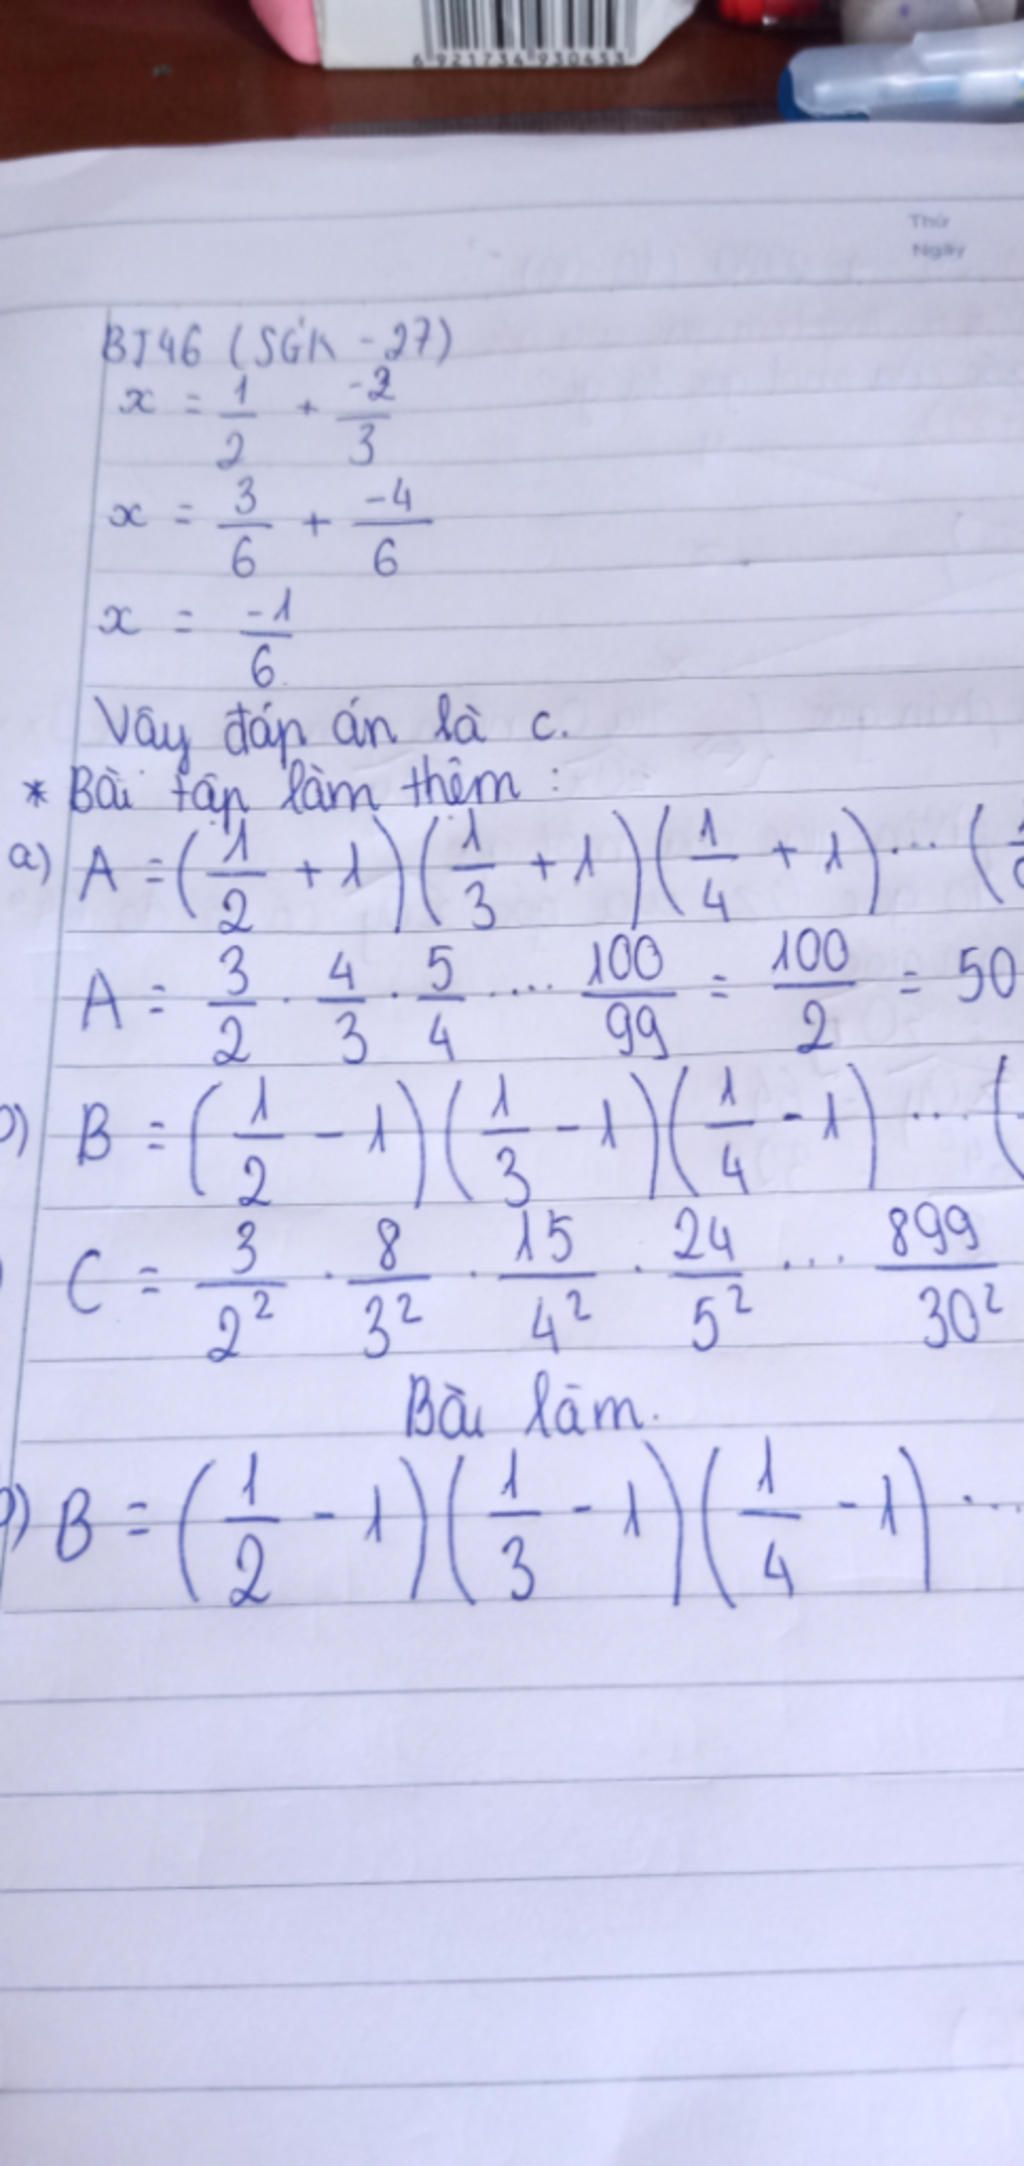 6 921734 930453
Thứ
Ngày
BT46 (SGK - 27)
x = 1/2 + -2/3
x = 3/6 + -4/6
x = -1/6
Vậy đáp án là c.
* Bài tập làm thêm :
a) A = (1/2 + 1)(1/3 + 1)(1/4 + 1)... (
A = 3/2 . 4/3 . 5/4 .... 100/99 = 100/2 = 50
) B = (1/2 - 1)(1/3 - 1)(1/4 - 1) ... (
C = 3/2² . 8/3² . 15/4² . 24/5² ... 899/30²
Bài làm.
) B = (1/2 - 1)(1/3 - 1)(1/4 - 1) ...